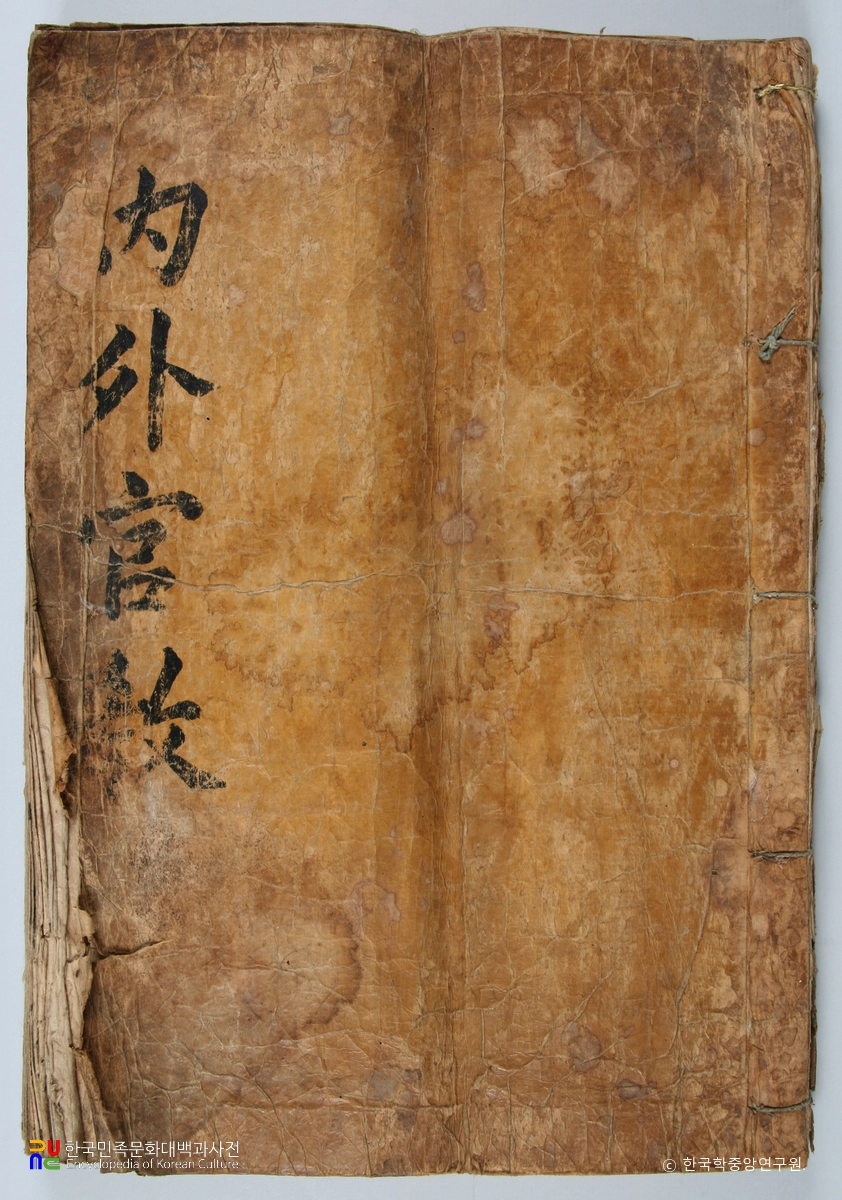 内外官
한국민족문화대백과사전
Encyclopedia of Korean Culture
© 한국학중앙연구원